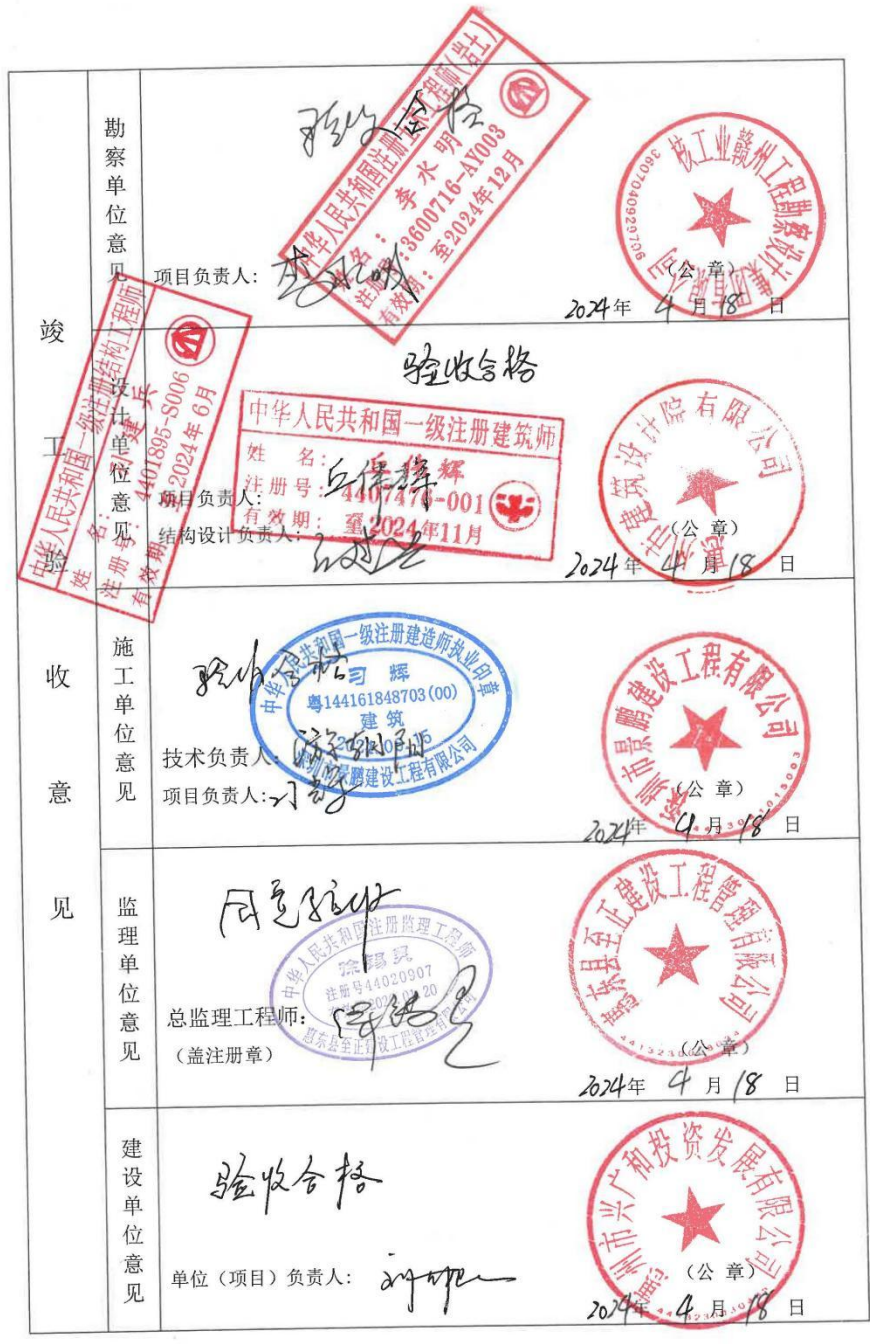 竣工验收意见
勘察单位意见
验收合格
中华人民共和国注册土木工程师(岩土)
姓名：李水明
注册号：3600716-AY003
有效期：至2024年12月
项目负责人：李水明
核工业赣州工程勘察设计集团有限公司
(公 章)
2024年 4月18日
设计单位意见
验收合格
中华人民共和国一级注册结构工程师
姓 名：
注册号：4401895-S006
有效期：至2024年6月
中华人民共和国一级注册建筑师
姓 名：丘伟辉
注册号：4407476-001
有效期：至2024年11月
项目负责人：丘伟辉
结构设计负责人：
惠州市建筑设计院有限公司
(公 章)
2024年 4月18日
施工单位意见
验收合格
中华人民共和国一级注册建造师执业印章
习辉
粤144161848703(00)
建筑
深圳市景鹏建设工程有限公司
技术负责人：
项目负责人：习辉
深圳市景鹏建设工程有限公司
(公 章)
2024年 4月18日
监理单位意见
同意验收
中华人民共和国注册监理工程师
注册号44020907
惠东县至正建设工程管理有限公司
总监理工程师：
(盖注册章)
惠东县至正建设工程管理有限公司
(公 章)
2024年 4月18日
建设单位意见
验收合格
单位（项目）负责人：
惠州市兴广和投资发展有限公司
(公 章)
2024年 4月18日